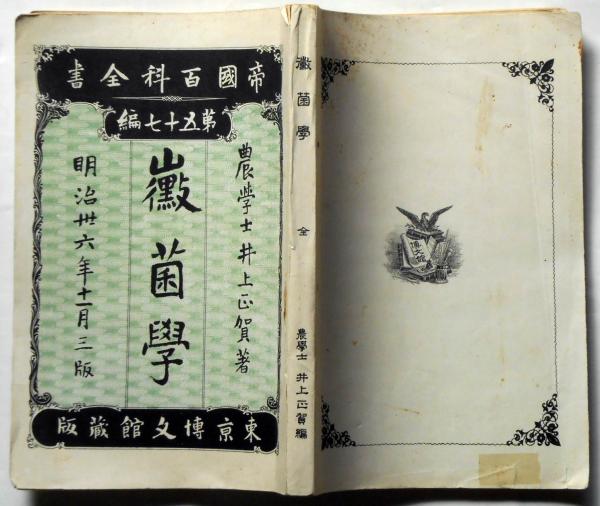 帝國百科全書
第五十七編
農學士井上正賀著
黴菌學
明治卅六年十一月三版
東京博文館藏版
黴菌學
全
農學士 井上正賀編
博文館